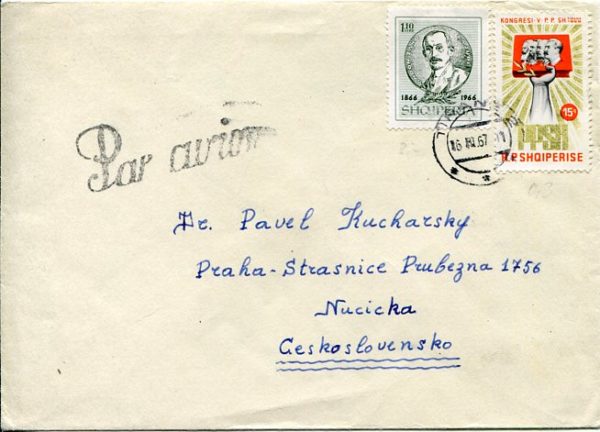 1.10
1866 1966
SHQIPERIA
KONGRESI V P.P. SH 1966
15q
PPSH
R.P. SHQIPERISE
16 .67
Par avion
Dr. Pavel Kucharsky
Praha-Strasnice Prubezna 1756
Nucicka
Ceskoslovensko